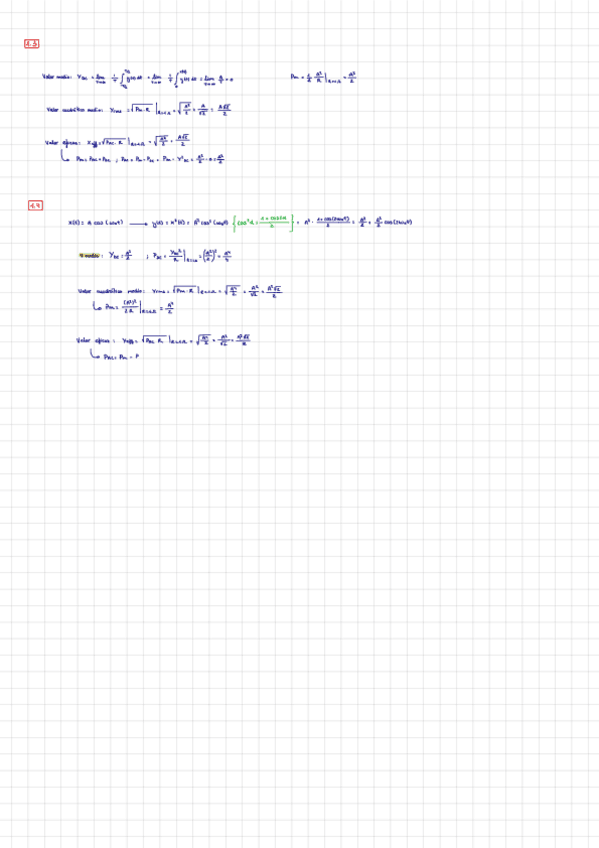 1.3
Valor medio: Y_DC = lim T→∞ 1/T ∫ y(t) dt = lim T→∞ 1/T ∫ y(t) dt = lim T→∞ = 0 Pm = 1/2 A²/R |R=1Ω = A²/2
Valor cuadrático medio: Yrms = √(Pm·R) |R=1Ω = √(A²/2) = A/√2 = A√2/2
Valor eficaz: X_eff = √(P_AC·R) |R=1Ω = √(A²/2) = A√2/2
↳ Pm = P_AC + P_DC ; P_AC = Pm - P_DC = Pm - Y²_DC = A²/2 - 0 = A²/2
1.4
x(t) = A cos(ω₀t) ⟶ y(t) = x²(t) = A² cos²(ω₀t) {cos²α = (1 + cos 2α)/2} = A² · (1 + cos(2ω₀t))/2 = A²/2 + A²/2 cos(2ω₀t)
V. medio: Y_DC = A²/2 ; P_DC = Y_DC²/R |R=1Ω = (A²/2)² = A⁴/4
Valor cuadrático medio: Yrms = √(Pm·R) |R=1Ω = √(A²/2) = A²/√2 = A²√2/2
↳ Pm = (A²)²/2R |R=1Ω = A²/2
Valor eficaz: Yeff = √(P_AC R) |R=1Ω = √(A²/2) = A²/√2 = A²√2/2
↳ P_AC = Pm - P